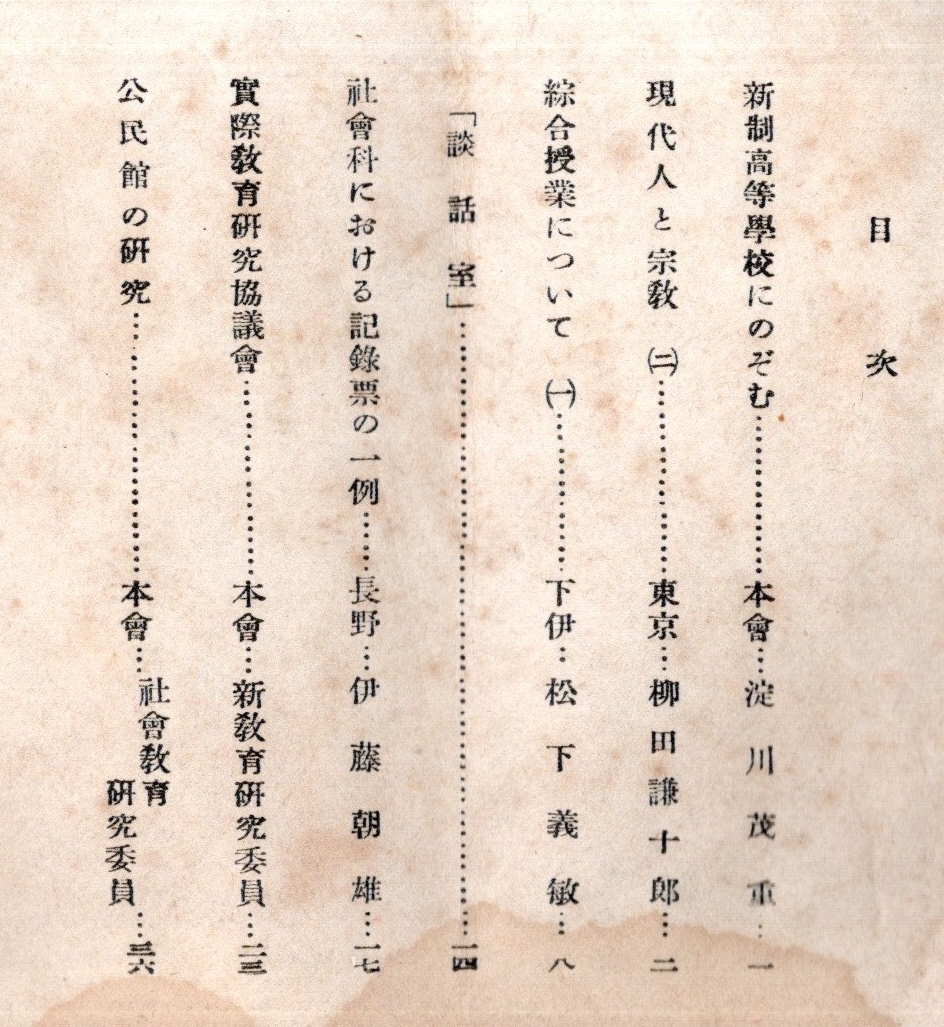 目次
新制高等學校にのぞむ…………本會…淀川茂重…一
現代人と宗教㈡…………東京…柳田謙十郎…二
綜合授業について㈠…………下伊…松下義敏…八
「談話室」…………一四
社會科における記錄票の一例……長野…伊藤朝雄…一七
實際敎育硏究協議會…………本會…新敎育硏究委員…二三
公民館の硏究…………本會…社會敎育硏究委員…三六